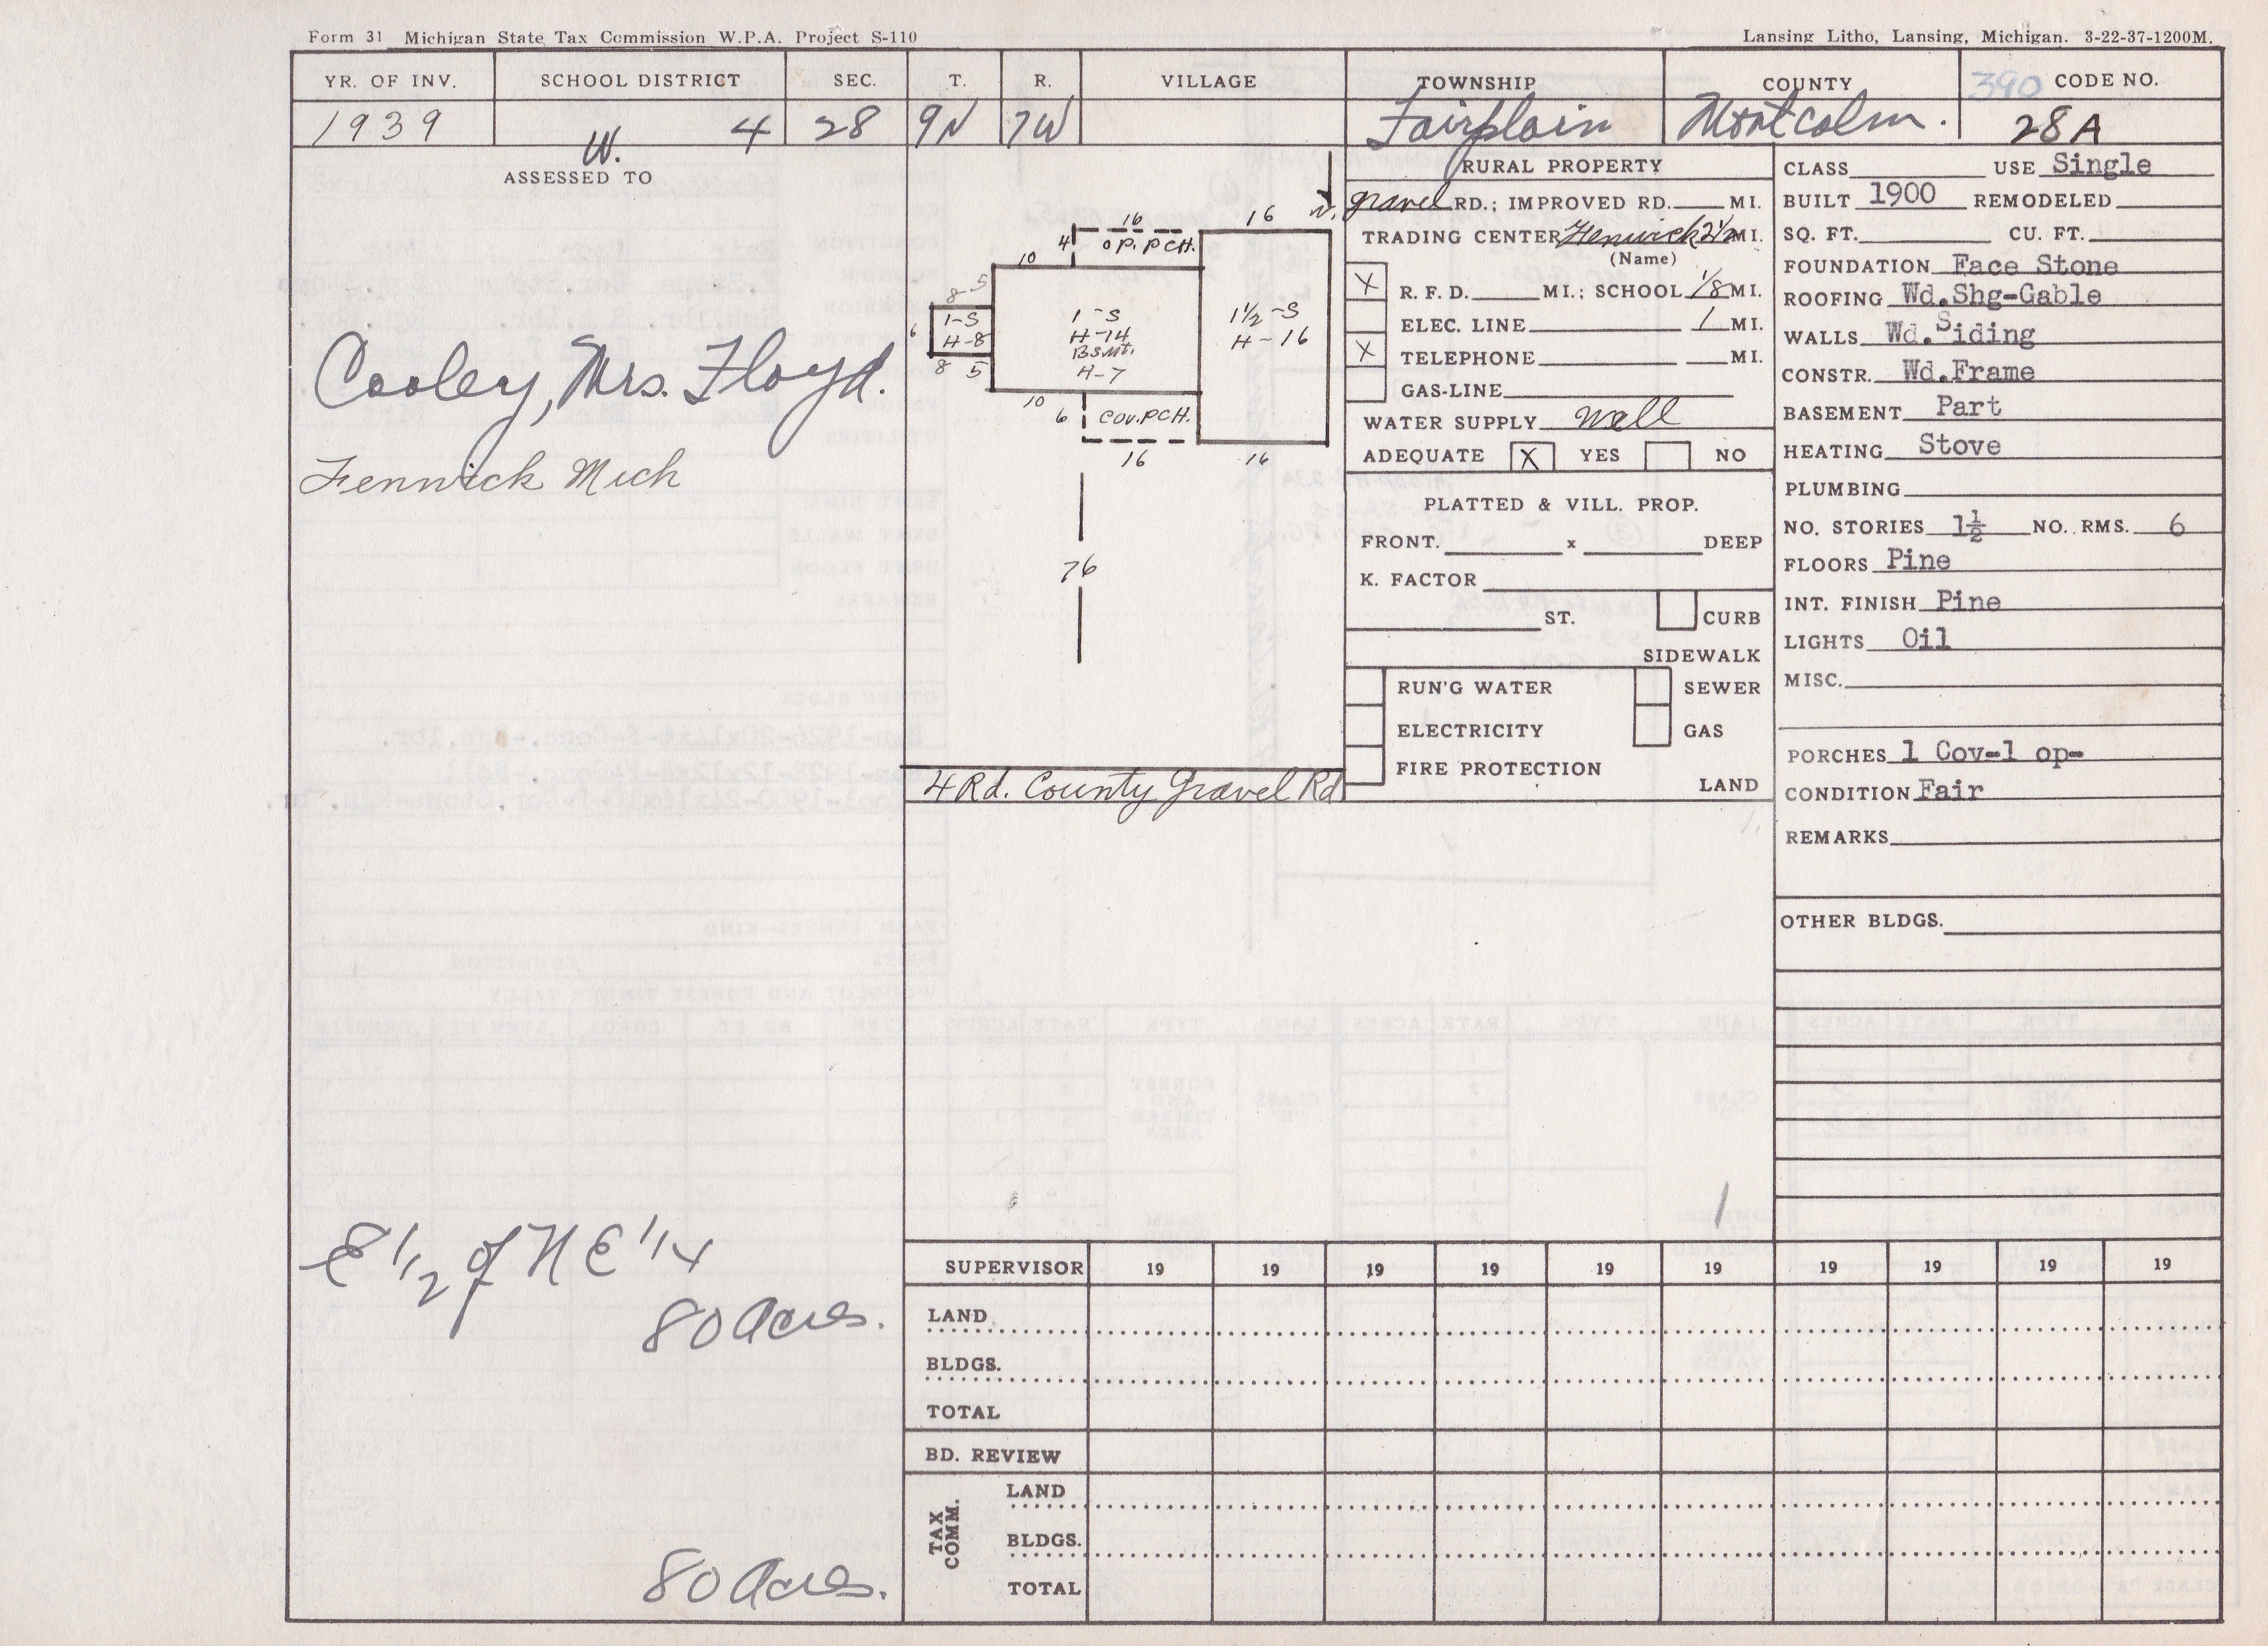 Form 31 Michigan State Tax Commission W.P.A. Project S-110
Lansing Litho, Lansing, Michigan. 3-22-37-1200M.
YR. OF INV. SCHOOL DISTRICT SEC. T. R. VILLAGE TOWNSHIP COUNTY 390 CODE NO.
1939 W. 4 28 9N 7W Fairplain Montcalm. 28A
ASSESSED TO
Cooley, Mrs. Floyd.
Fennwick Mich
E 1/2 of N E 1/4
80 Acres.
80 Acres.
N.
16
16
4
OP. PCH.
10
5
8
6
1-S
H-8
8
5
1-S
H-14
Bsmt.
H-7
1 1/2-S
H-16
10
6
COV. PCH.
16
16
76
4 Rd. County Gravel Rd
RURAL PROPERTY
gravel RD.; IMPROVED RD. MI.
TRADING CENTER Fenwick 2 1/2 MI.
(Name)
X R. F. D. MI.; SCHOOL 1/8 MI.
ELEC. LINE 1 MI.
X TELEPHONE MI.
GAS-LINE
WATER SUPPLY Well
ADEQUATE X YES NO
PLATTED & VILL. PROP.
FRONT. x DEEP
K. FACTOR
ST. CURB
SIDEWALK
RUN'G WATER SEWER
ELECTRICITY GAS
FIRE PROTECTION
LAND
CLASS USE Single
BUILT 1900 REMODELED
SQ. FT. CU. FT.
FOUNDATION Face Stone
ROOFING Wd.Shg-Gable
WALLS Wd.Siding
CONSTR. Wd.Frame
BASEMENT Part
HEATING Stove
PLUMBING
NO. STORIES 1½ NO. RMS. 6
FLOORS Pine
INT. FINISH Pine
LIGHTS Oil
MISC.
PORCHES 1 Cov-1 op-
CONDITION Fair
REMARKS
OTHER BLDGS.
SUPERVISOR 19 19 19 19 19 19 19 19 19 19
LAND
BLDGS.
TOTAL
BD. REVIEW
TAX COMM.
LAND
BLDGS.
TOTAL